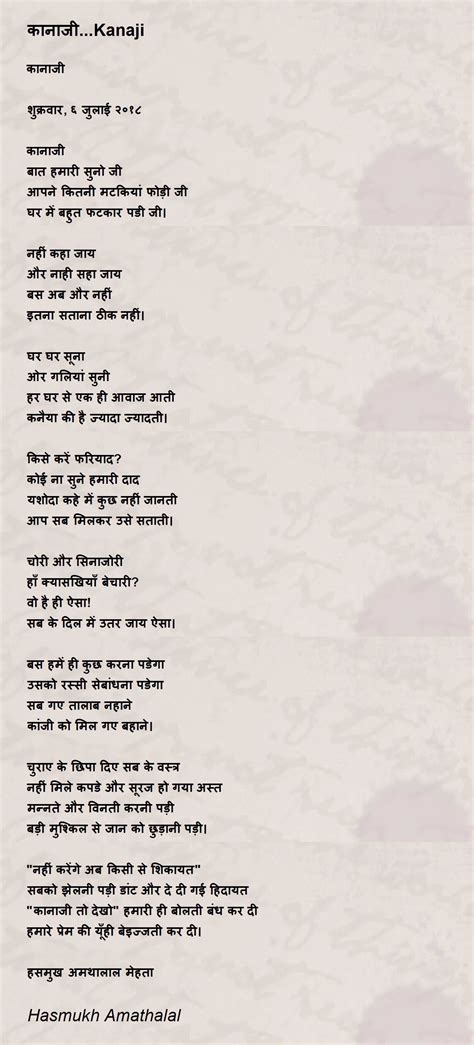 कानाजी...Kanaji
कानाजी
शुक्रवार, ६ जुलाई २०१८
कानाजी
बात हमारी सुनो जी
आपने कितनी मटकियां फोड़ी जी
घर में बहुत फटकार पडी जी।
नहीं कहा जाय
और नाही सहा जाय
बस अब और नहीं
इतना सताना ठीक नहीं।
घर घर सूना
ओर गलियां सुनी
हर घर से एक ही आवाज आती
कनैया की है ज्यादा ज्यादती।
किसे करें फरियाद?
कोई ना सुने हमारी दाद
यशोदा कहे में कुछ नहीं जानती
आप सब मिलकर उसे सताती।
चोरी और सिनाजोरी
हाँ क्यासखियाँ बेचारी?
वो है ही ऐसा!
सब के दिल में उतर जाय ऐसा।
बस हमें ही कुछ करना पडेगा
उसको रस्सी सेबांधना पडेगा
सब गए तालाब नहाने
कांजी को मिल गए बहाने।
चुराए के छिपा दिए सब के वस्त्र
नहीं मिले कपडे और सूरज हो गया अस्त
मन्नते और विनती करनी पड़ी
बड़ी मुश्किल से जान को छुड़ानी पड़ी।
"नहीं करेंगे अब किसी से शिकायत"
सबको झेलनी पड़ी डांट और दे दी गई हिदायत
"कानाजी तो देखो" हमारी ही बोलती बंध कर दी
हमारे प्रेम की यूँही बेइज्जती कर दी।
हसमुख अमथालाल मेहता
Hasmukh Amathalal